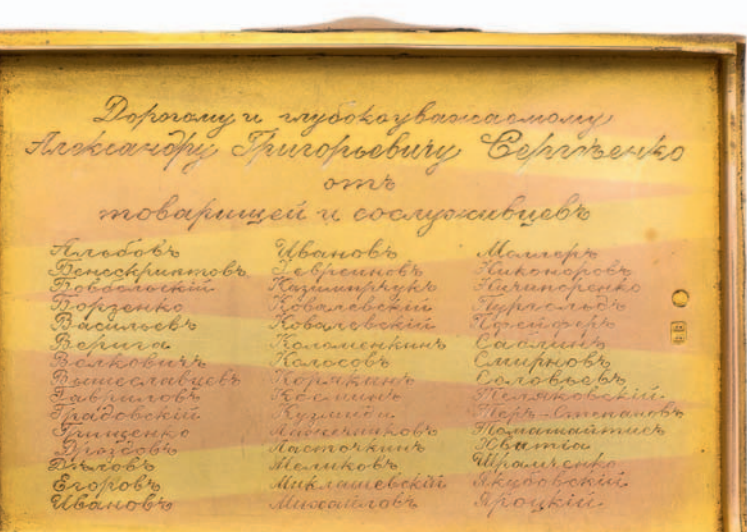 Дорогому и глубокоуважаемому
Александру Григорьевичу Сергѣенко
отъ
товарищей и сослуживцевъ
Альбовъ
Бенескриптовъ
Бобовскій
Борзенко
Васильевъ
Верига
Волковичъ
Вышеславцевъ
Гавриловъ
Градовскій
Грищенко
Дроздовъ
Дѣловъ
Егоровъ
Ивановъ
Ивановъ
Казимірчукъ
Ковалевскій
Ковалевскій
Коломенкинъ
Колосовъ
Корякинъ
Косминъ
Ласточкинъ
Меликовъ
Миклашевскій
Михайловъ
Моллеръ
Никоноровъ
Ничипоренко
Пургольдъ
Пфейферъ
Саблинъ
Смирновъ
Соловьевъ
Теляковскій
Теръ-Степановъ
Томашайтисъ
Хватіа
Шрамченко
Якубовскій
Яроцкій